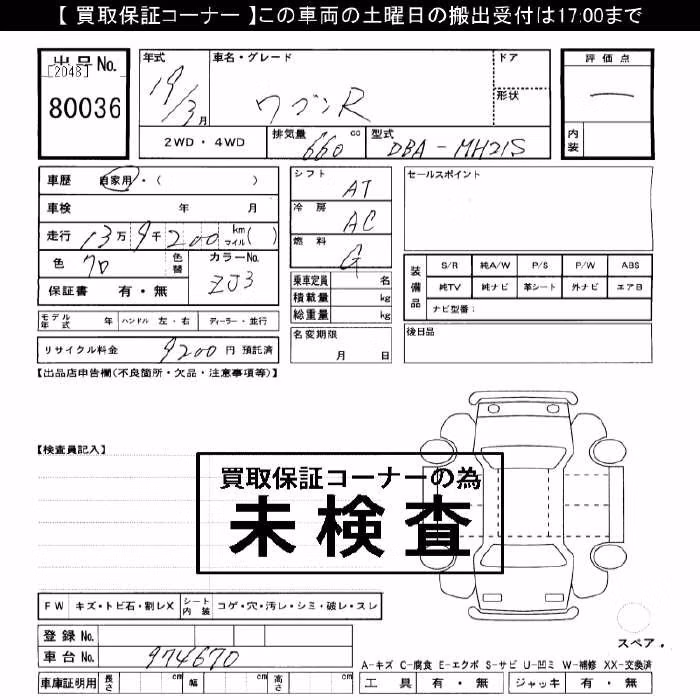 【 買取保証コーナー 】この車両の土曜日の搬出受付は17:00まで
出品No.
[2048]
80036
年式
19/3月
車名・グレード
ワゴンR
ドア
形状
評価点
―
内装
2WD・4WD
排気量 660 cc
型式 DBA-MH21S
車歴 自家用・( )
車検 年 月
走行 13万9千200 km マイル( )
色 クロ 色替 カラーNo. ZJ3
保証書 有・無
シフト AT
冷房 AC
燃料 G
乗車定員 名
積載量 kg
総重量 kg
セールスポイント
装備品
S/R 純A/W P/S P/W ABS
純TV 純ナビ 革シート 外ナビ エアB
ナビ型番:
モデル年式 年 ハンドル 左・右 ディーラー・並行
名変期限 月 日
後日品
リサイクル料金 9200 円 預託済
【出品店申告欄(不良箇所・欠品・注意事項等)】
【検査員記入】
買取保証コーナーの為
未検査
FW キズ・トビ石・割レX シート内装 コゲ・穴・汚レ・シミ・破レ・スレ
登録No.
車台No. 974670
スペア
A-キズ C-腐食 E-エクボ S-サビ U-凹ミ W-補修 XX-交換済
車庫証明用 長さ cm 幅 cm 高さ cm
工具 有・無 ジャッキ 有・無